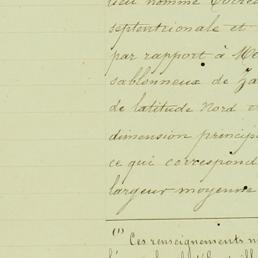 lieu nommé
septentrionale et
par rapport à
sablonneux de
de latitude Nord
dimension princip
ce qui correspond
largeur moyenne
(1) Ces renseignements n